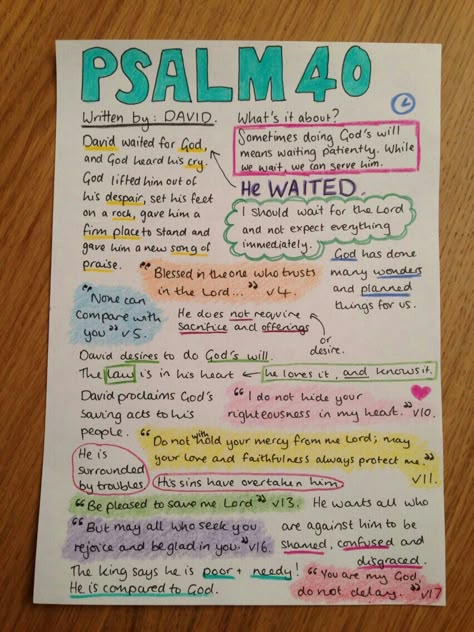 PSALM 40
Written by: DAVID.
What's it about?
Sometimes doing God's will
means waiting patiently. While
we wait, we can serve him.
David waited for God,
and God heard his cry.
God lifted him out of
his despair, set his feet
on a rock, gave him a
firm place to stand and
gave him a new song of
praise.
He WAITED.
I should wait for the Lord
and not expect everything
immediately.
God has done
many wonders
and planned
things for us.
"Blessed in the one who trusts
in the Lord..." v4.
"None can
compare with
you" v5.
He does not require
sacrifice and offerings
or
desire.
David desires to do God's will.
The law is in his heart ← he loves it, and knows it.
David proclaims God's
saving acts to his
people.
"I do not hide your
righteousness in my heart." v10.
He is
surrounded
by troubles.
"Do not withhold your mercy from me Lord; may
your love and faithfulness always protect me."
v11.
His sins have overtaken him
"Be pleased to save me Lord" v13.
"But may all who seek you
rejoice and be glad in you." v16.
He wants all who
are against him to be
shamed, confused and
disgraced.
The king says he is poor + needy!
He is compared to God.
"You are my God,
do not delay." v17